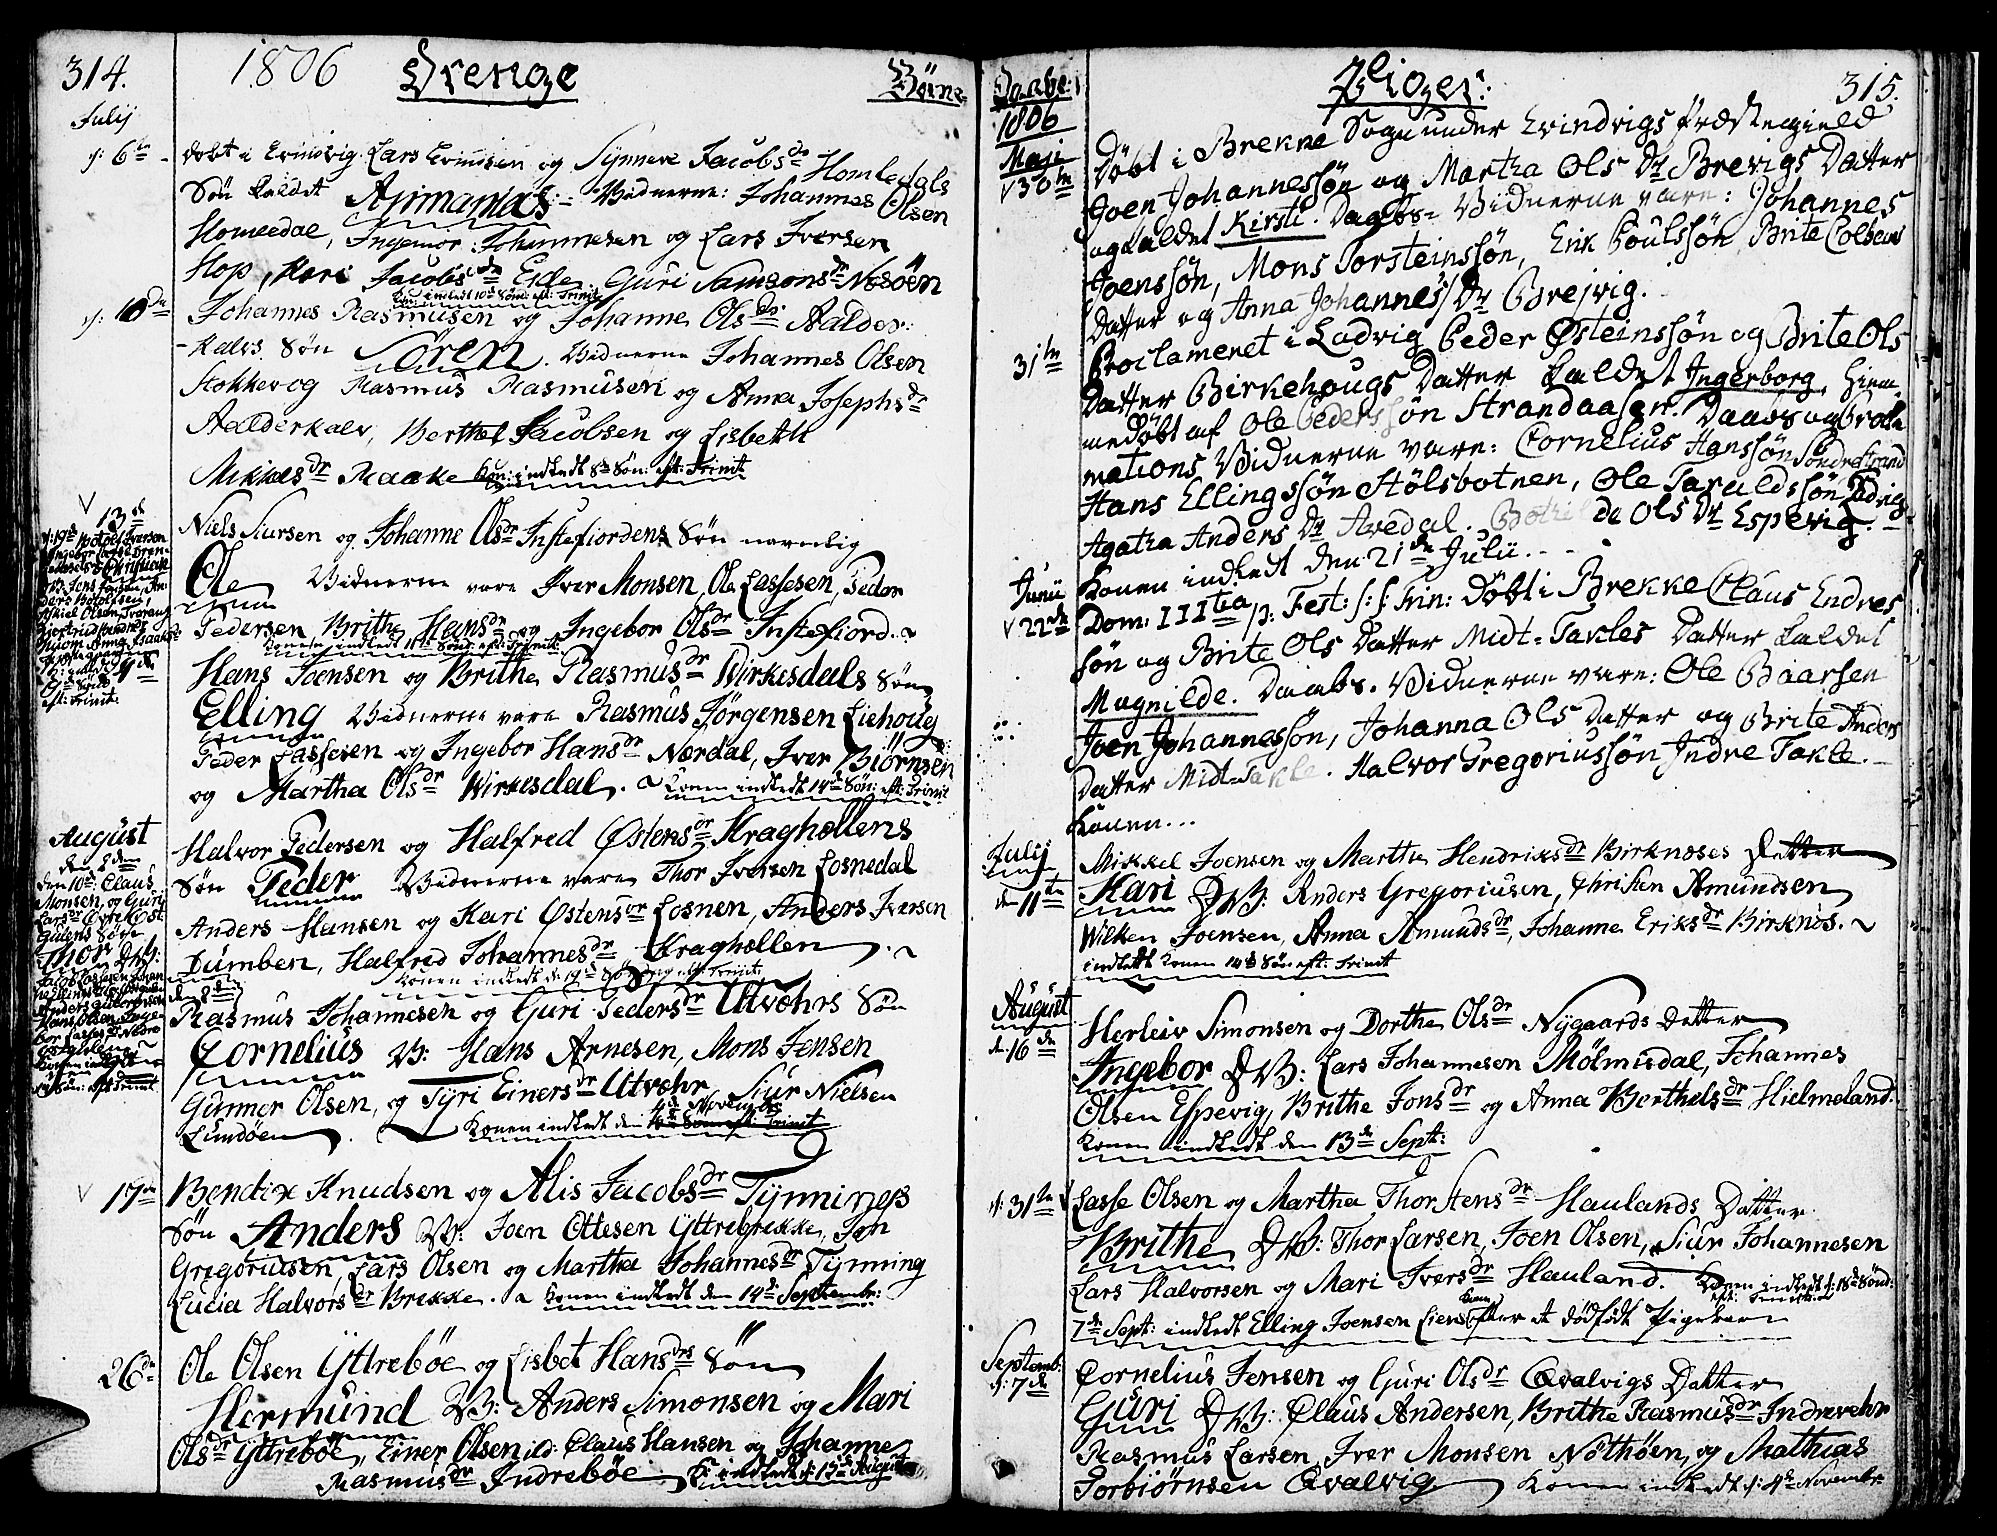 314. 1806 Drenge Børne
Julij
d: 6te døbt i Evindvig. Lars Erimsen og Synneve Jacobsdr Homledals
Søn kaldet Animanias - Vidnerne: Johannes Olsen
Homledal, Ingemor Johannesen og Lars Iversen
Hop, Kari Jacobsdr Eide Guri Samsonsdr Nosöen
Kon: indledt 10de Søn: eft: Trinit
d: 10de Johannes Rasmusen og Johanne Olsdr Aalder-
kalvs Søn Sören. Vidnerne Johannes Olsen
Stokkev og Rasmus Rasmusen og Anna Josephsdr
Aalderkalv, Berthel Jacobsen og Lisbeth
Mikkelsdr Raake Kon: indledt 8de Søn: eft: Trinit
13de Niels Siursen og Johanne Olsdr Instefiordens Søn navnlig
Ole Vidnerne vare Iver Monsen, Ole Lassesen, Peder
Pedersen, Brithe Hansdr og Ingebor Olsdr Instefiord.
Konen indledt 11te Sønd: eft: Trinit:
d: 19de Botolf Iverson
Ingebor
Christian
Jens Jensen, An-
ders Botolfsen,
Askiel Olsen Tverang
Giertrud
Anna Isaaksdr
eft: Trinit.
Hans Joensen og Brithe Rasmusdr Wirkesdals Søn
Elling Vidnerne vare Rasmus Jörgensen Liehoug
Peder Lassesen og Ingebor Hansdr Nordal, Iver Biörnsen
og Martha Olsdr Wirkesdal. Konen indledt 14de Søn: eft: Trinit
August
den 2den
Halvor Pedersen og Halfred Östensdr Kraghellens
Søn Peder Vidnerne vare Thor Iversen Losnedal
Anders Hansen og Kari Östensdr Losnen, Anders Iversen
Dumben, Halfred Johannesdr Kraghellen
Konen indledt d: 19de Søndag eft: Trinit:
den 10de: Claus
Monsen, og Guri
Larsdr
Gulens Søn
Thor DV:
Hans Olsen
Konen indledt
Søn: eft Trinit
Rasmus Johannesen og Guri Pedersdr Utvöhrs Søn
Cornelius V: Hans Arnesen, Mons Jensen
Gunnor Olsen, og Tyri Einersdr Utvehr Siur Nielsen
Lundöen. Konen indledt den 4de Novembr
17de Bendix Knudsen og Alis Jacobsdr Tynnineß
Søn Anders DV: Joen Ottesen Yttrebrekke, Jon
Gregoriusen, Lars Olsen og Martha Johannesdr Tynning
Lucia Halvorsdr Brekke. Konen indledt den 14de Septembr:
26de Ole Olsen Yttreböe og Lisbet Hansdrs Søn
Hermund DV: Anders Simonsen og Mari
Olsdr Yttreböe, Einer Olsen ild: Claus Hansen og Johanne
Rasmusdr Indreböe K: indledt d: 13de August
Daabe: Piger: 315.
1806
Maji
30te Døbt i Brekne Sogn under Evindvigs Præstegield
Joen Johannessøn og Martha Ols Dr Brevigs Datter
og kaldet Kirsti. Daabs- Vidnerne vare: Johannes
Joenssøn, Mons Torsteinssøn, Erik Poulssøn, Brite Colbens
Datter og Anna Johannes Dr Brejvig.
31te Proclameret i Ladvig Peder Østeinssøn og Brite Ols
Datter Birkehougs Datter kaldet Ingerborg, hiem-
medøbt af Ole Pederssøn Strandaasen. Daabs og Procla
mations Vidnerne vare: Cornelius Hanssøn Søndrestrand
Hans Ellingssøn Stölsbotnen, Ole Taruldssøn
Agatha Anders Dr Avedal. Botilde Ols Dr Espevig.
Konen indledt den 21de Julii.
Junii
22de Dom: IIItia p: Fest: S: S: Trin: Døbt i Brekke Claus Endres
søn og Brite Ols Datter Midt-Takles Datter kaldet
Magnilde. Daabs- Vidnerne vare: Ole Baarsen
Joen Johannessøn, Johanna Ols Datter og Brite Anders
Datter Midt-Takle. Halvor Gregoriussøn Indre Takle.
Konen...
Julij
den 11te Mikkel Joensen og Martha Hendriksdr Birknoses Datter
Kari DV: Anders Gregoriusen, Christen Amundsen
Wilken Joensen, Anna Amundsdr, Johanne Eriksdr Birknös.
indledt Konen 14de Søn eft: Trinit
August
d. 16de Herleiv Simonsen og Dorthe Olsdr Nygaards Datter
Ingebor DV: Lars Johannesen Mölmesdal, Johannes
Olsen Espevig, Brithe Jonsdr og Anna Berthelsdr Hielmeland.
Konen indledt den 13de Sept:
d: 31te Lasse Olsen og Martha Thorstensdr Haulands Datter
Brithe DV: Thor Larsen, Joen Olsen, Siur Johannesen
Lars Halvorsen og Mari Iversdr Hauland. Konen indledt d: 18de Sønd:
eft: Trinit:
7de Sept: indledt Elling Joensen Liens Kone efter et dødfødt Pigebarn
Septemb:
d: 7de Cornelius Jensen og Guri Olsdr Qvalvigs Datter
Guri DV: Claus Andersen, Brithe Rasmusdr Indrevehr
Rasmus Larsen, Iver Monsen Nöthöen, og Mathias
Torbiörnsen Qvalvig. Konen indledt d: 4de Novembr